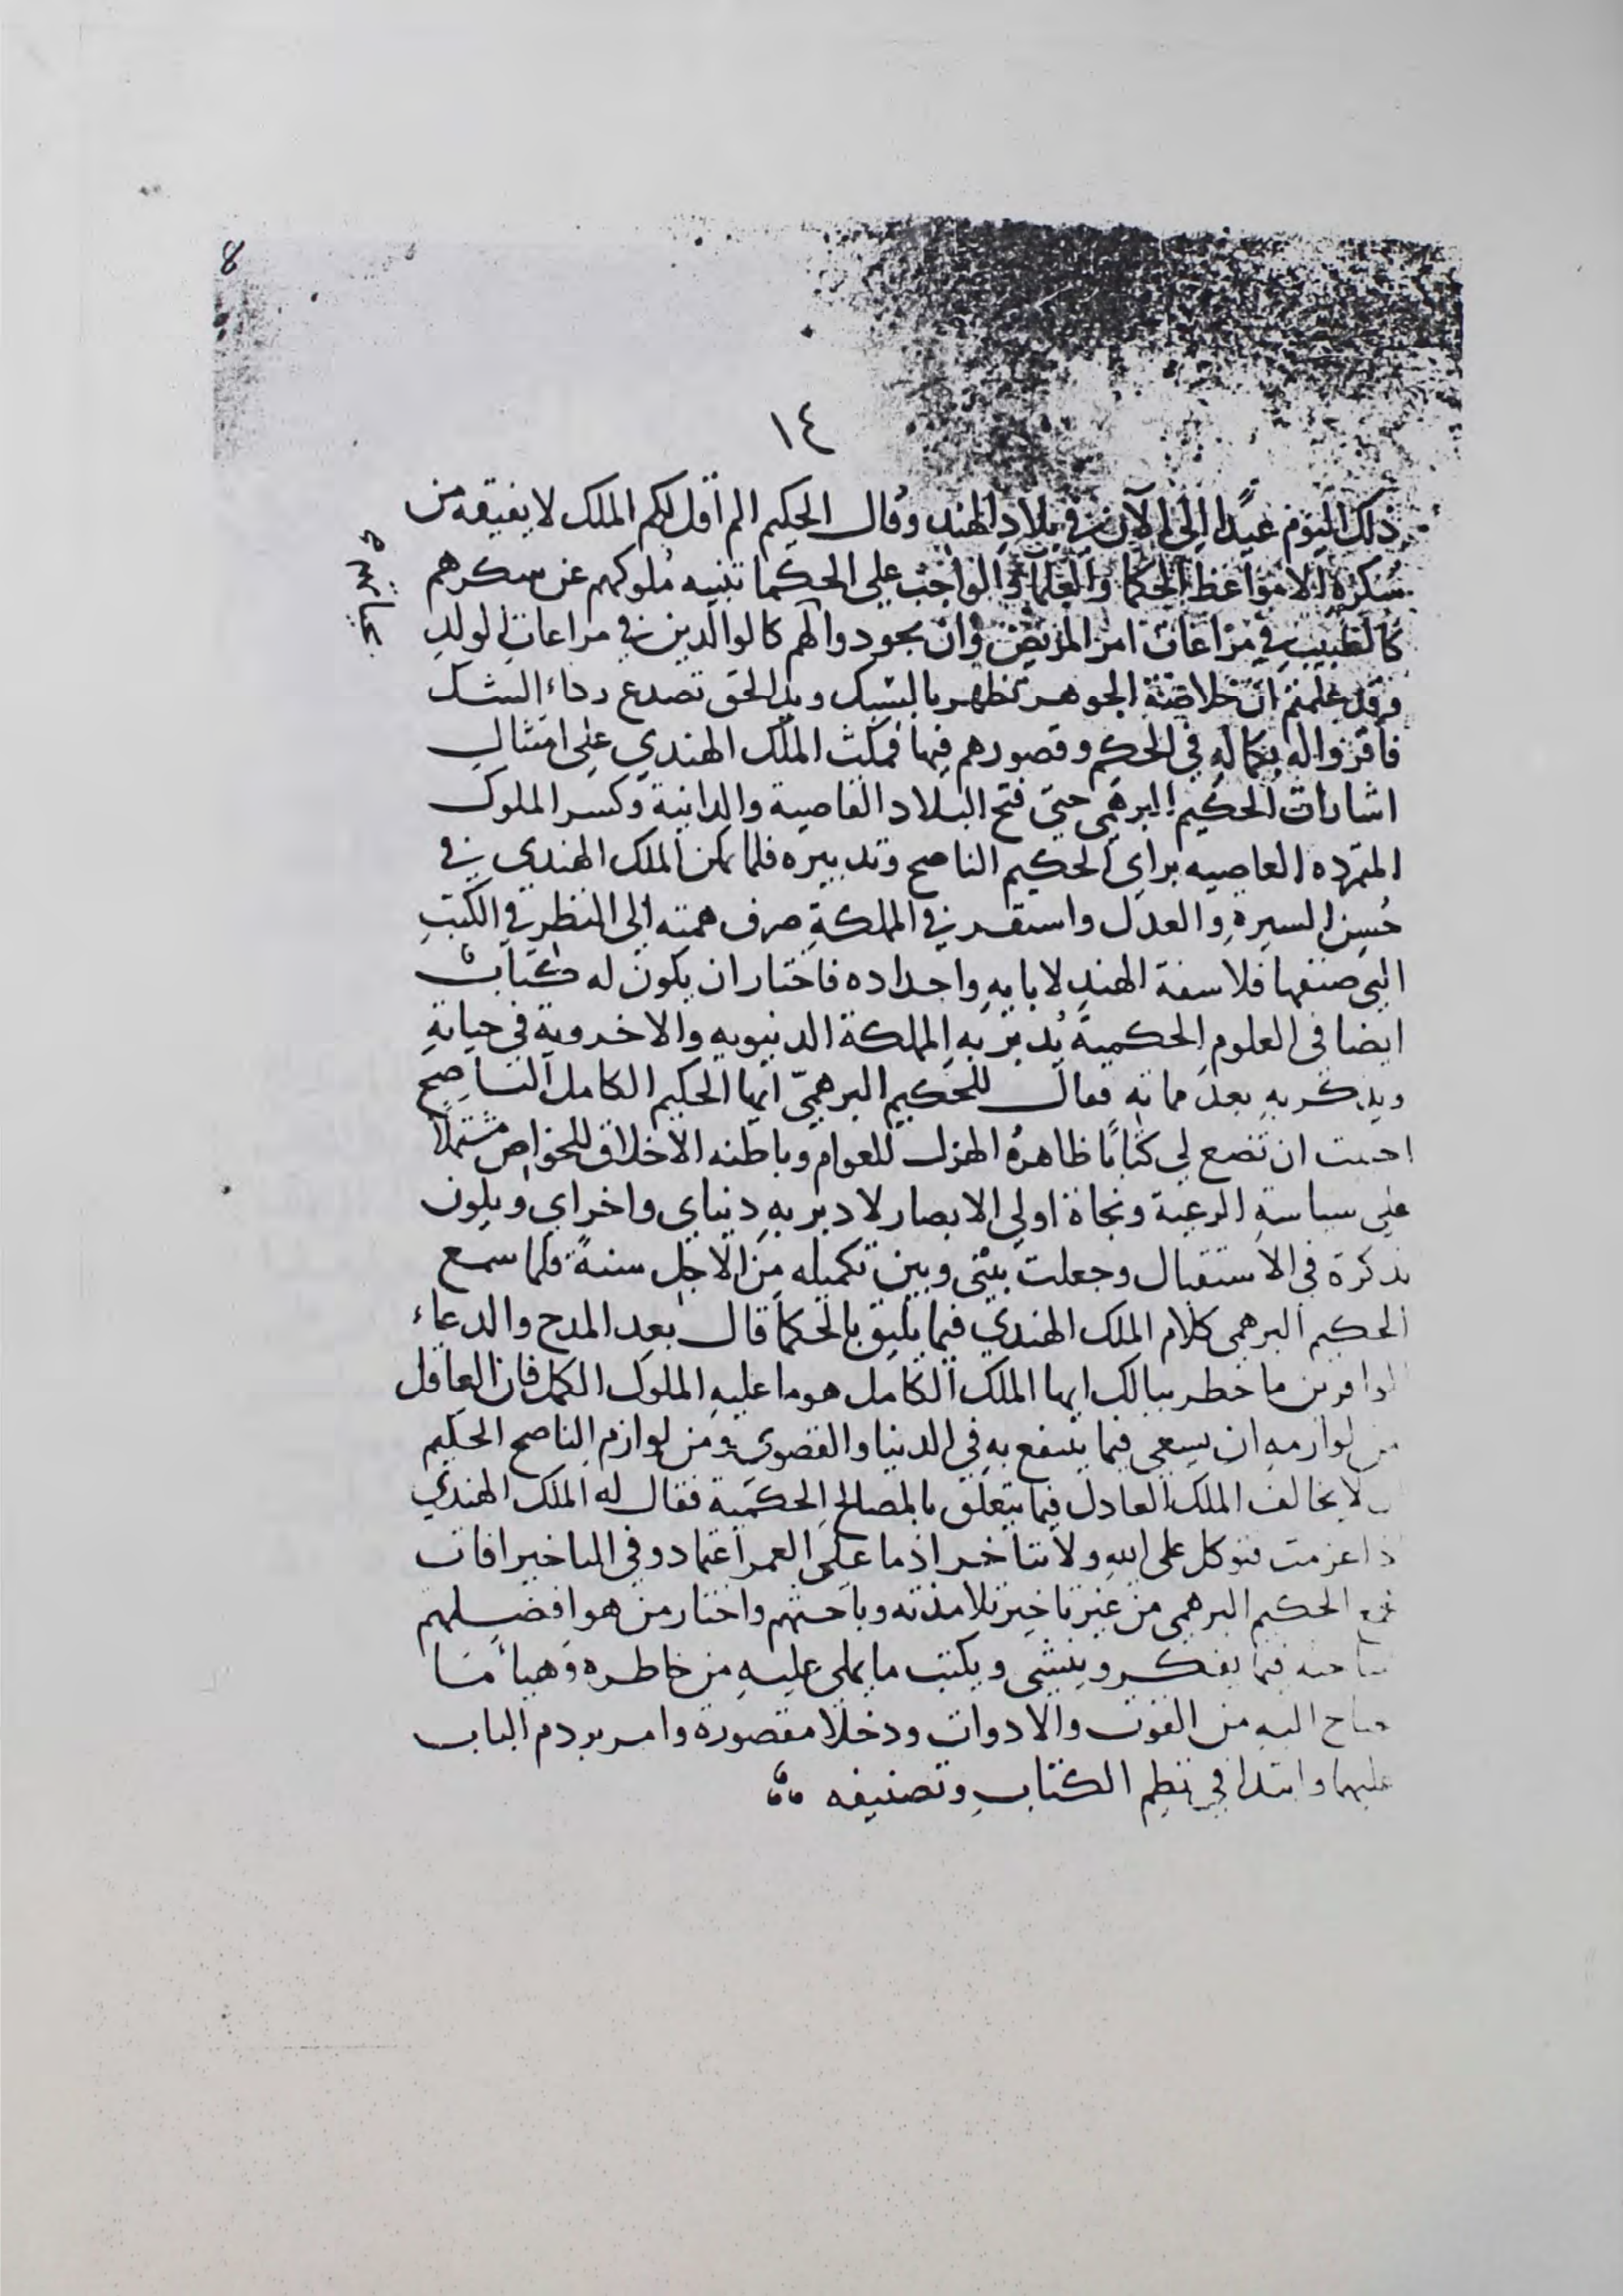 8
١٤
ذلك اليوم عيدًا الى الآن في بلاد الهند وقال الحكيم الم اقل لكم الملك لا يفيقه من
سكره الا مواعظ الحكما والعلما والواجب على الحكما تنبيه ملوكهم عن سكرهم
كالطبيب في مراعات امر المريض وان يجود والهم كالوالدين في مراعات الولد
وقد علمتم ان خلاصة الجوهر تظهر بالسبك ويد الحق تصدع رداء الشك
فاقروا له بكماله في الحكم وقصورهم فيها فمكث الملك الهندي على امتثال
اشارات الحكيم البرهمي حتى فتح البلاد القاصية والدانية وكسر الملوك
المتمرده العاصيه براي الحكيم الناصح وتدبيره فلما تمكن الملك الهندي في
حُسن السيرة والعدل واستقر في المملكة صرف همته الى النظر في الكتب
التي صنفها فلاسفة الهند لابايه واجداده فاختار ان يكون له كتاب
ايضا في العلوم الحكمية يُدبّر به المملكة الدنيويه والاخروية في حياته
ويذكر به بعد مماته فقال للحكيم البرهميّ ايها الحكيم الكامل الناصح
احببت ان تضع لي كتابًا ظاهره الهزل للعوام وباطنه الاخلاق للخواص مشتملا
على سياسة الرعية ونجاة اولي الابصار لادبر به دنياي واخراي ويكون
تذكرة في الاستقبال وجعلت بيني وبين تكميله من الاجل سنةً فلما سمع
الحكيم البرهمي كلام الملك الهندي فيما يليق بالحكما قال بعد المدح والدعاء
الوافرين ما خطر ببالك ايها الملك الكامل هو ما عليه الملوك الكمل فان العاقل
من لوازمه ان يسعى فيما ينتفع به في الدنيا والقصوى ومن لوازم الناصح الحكيم
لا يخالف الملك العادل فيما يتعلق بالمصالح الحكمية فقال له الملك الهندي
اذا عزمت فتوكل على الله ولا تتأخر اذ ما على العمر اعتماد وفي التاخير افات
فجمع الحكيم البرهمي من غير تاخير تلامذته وباحثهم واختار من هو افضلهم
فيما يفكر وينشي ويكتب ما يملى عليه من خاطره وهيأ ما
يحتاج اليه من القوت والادوات ودخلا مقصورة وامر بردم الباب
عليهما وابتدا في نظم الكتاب وتصنيفه